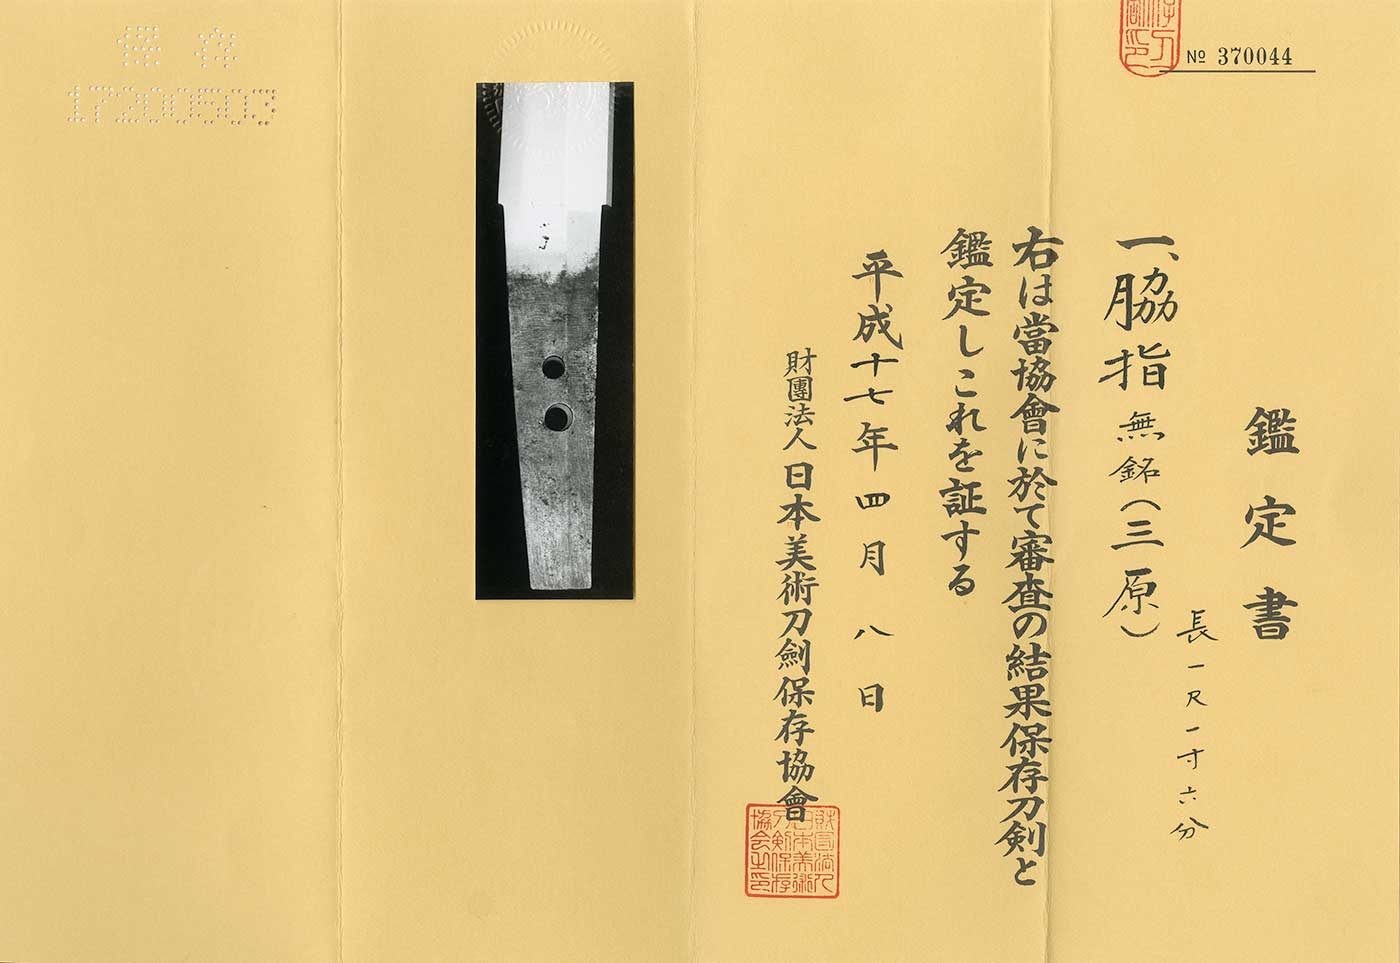 鑑定書
№ 370044
長一尺一寸六分
一、脇指 無銘(三原)
右は當協會に於て審査の結果保存刀剣と
鑑定しこれを証する
平成十七年四月八日
財團法人 日本美術刀劍保存協會
財団法人
日本美術
刀剣保存
協会之印
保存
17200503